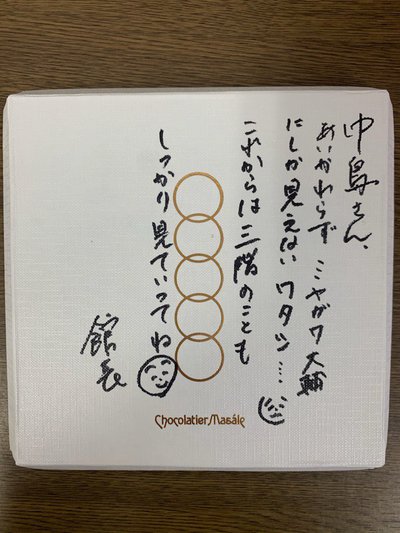 中島さん、
あいかわらず ミヤガワ大輔
にしか見えない ワタシ…
これからは三階のことも
しっかり見ていってね
館長
Chocolatier Masále